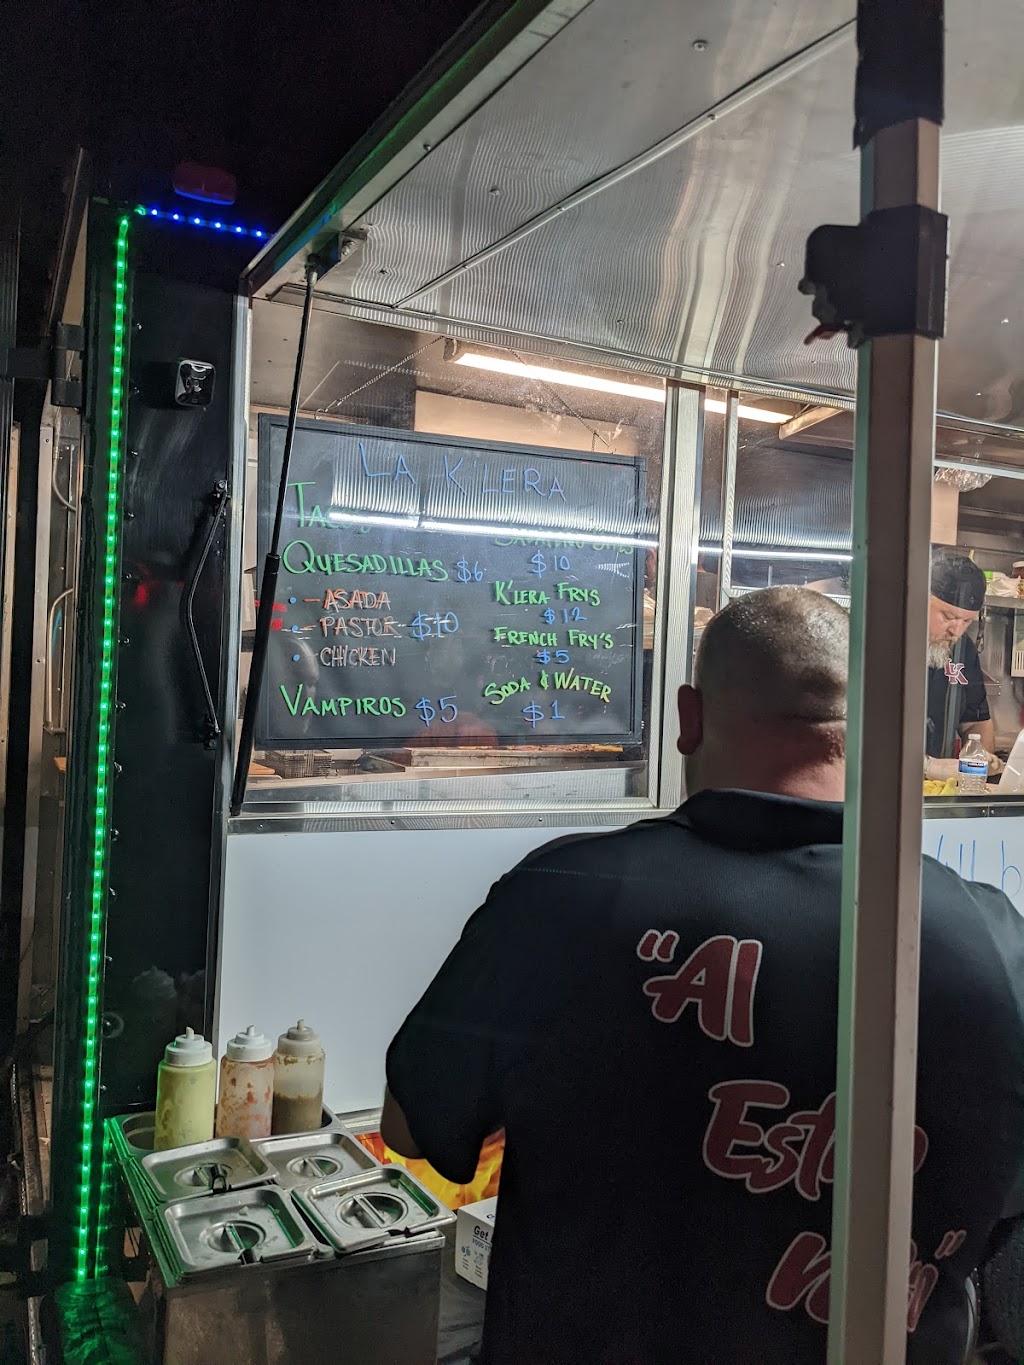 LA K'LERA
TACOS
QUESADILLAS $6
- ASADA
- PASTOR $10
- CHICKEN
VAMPIROS $5
$10
K'LERA FRYS
$12
FRENCH FRY'S
$5
SODA & WATER
$1
LK
"Al
Get